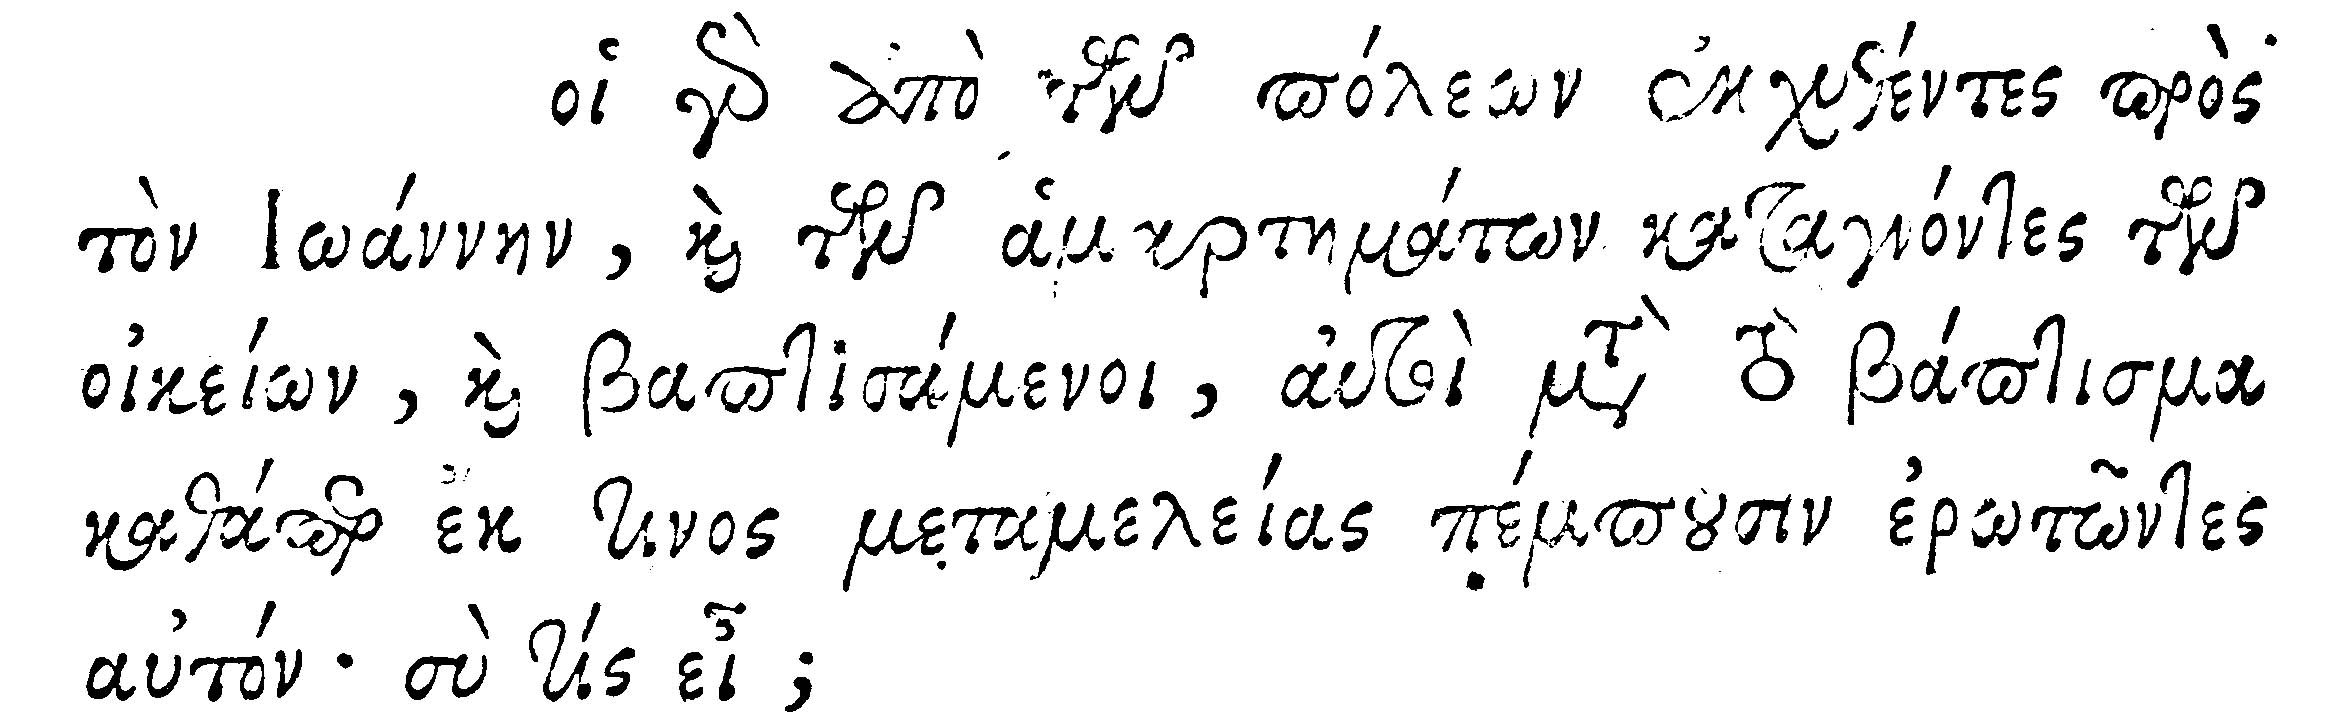 οἱ γὰρ ἀπὸ τῶν πόλεων ἐκχυθέντες πρὸς
τὸν Ἰωάννην, καὶ τῶν ἁμαρτημάτων καταγνόντες τῶν
οἰκείων, καὶ βαπτισάμενοι, αὐτοὶ μετὰ τὸ βάπτισμα
καθάπερ ἐκ τινος μεταμελείας πέμπουσιν ἐρωτῶντες
αὐτόν· σὺ τίς εἶ;